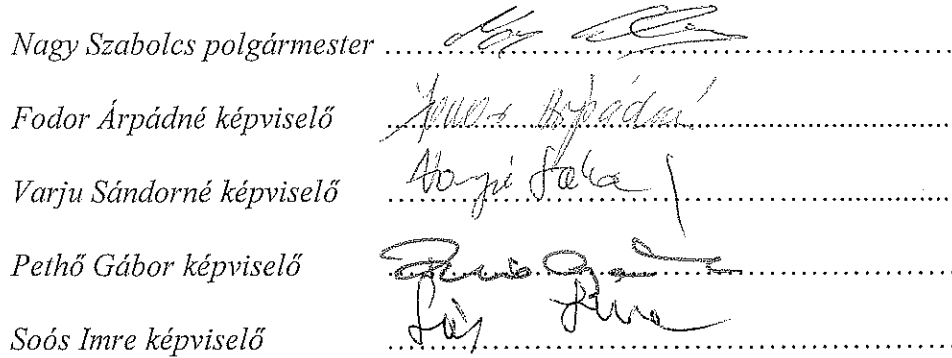 Nagy Szabolcs polgármester
Fodor Árpádné képviselő Fodor Árpádné
Varju Sándorné képviselő
Pethő Gábor képviselő
Soós Imre képviselő Soós Imre